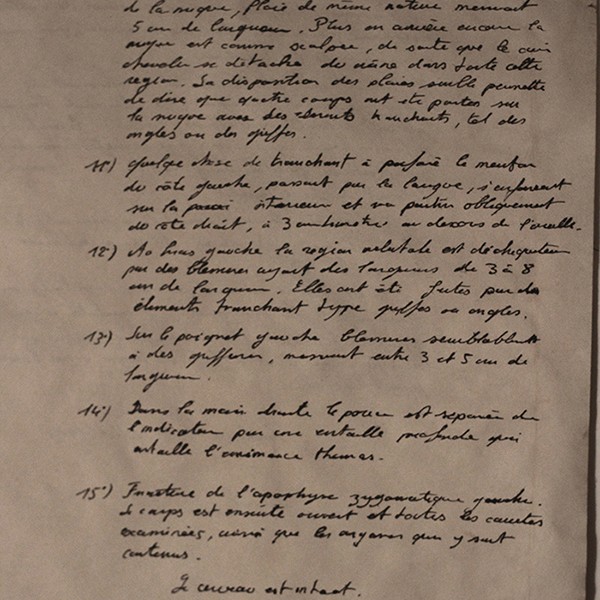 de la nuque, plaie de même nature mesurant
5 cm de longueur. Plus en arrière encore la
nuque est comme scalpée, de sorte que le cuir
chevelu se détache du crâne dans toute cette
region. La disposition des plaies, semble permettre
de dire que quatre coups ont été portés sur
la nuque avec des élements tranchants, tel des
ongles ou des griffes.
11°) Quelque chose de tranchant à perforé le menton
du côté gauche, passant par la langue, s'enfonçant
sur la paroi interieure et va partir obliquement
du côté droit, à 3 centimetres au dessous de l'oreille.
12°) Au bras gauche la region est déchiquetée
par des blessures ayant des longueurs de 3 à 8
cm de longueur. Elles ont été faites par des
élements tranchant type griffes ou ongles.
13°) Sur le poignet gauche blessures semblables
à des griffures, mesurant entre 3 et 5 cm de
longueur.
14°) Dans la main droite le pouce est separée de
l'indicateur par une entaille profonde qui
entaille l'eminence thenar.
15°) Fracture de l'apophyse zygomatique gauche.
Le corps est ensuite ouvert et toutes les cavités
examinées, ainsi que les organes qui y sont
contenus.
Le cerveau est intact.